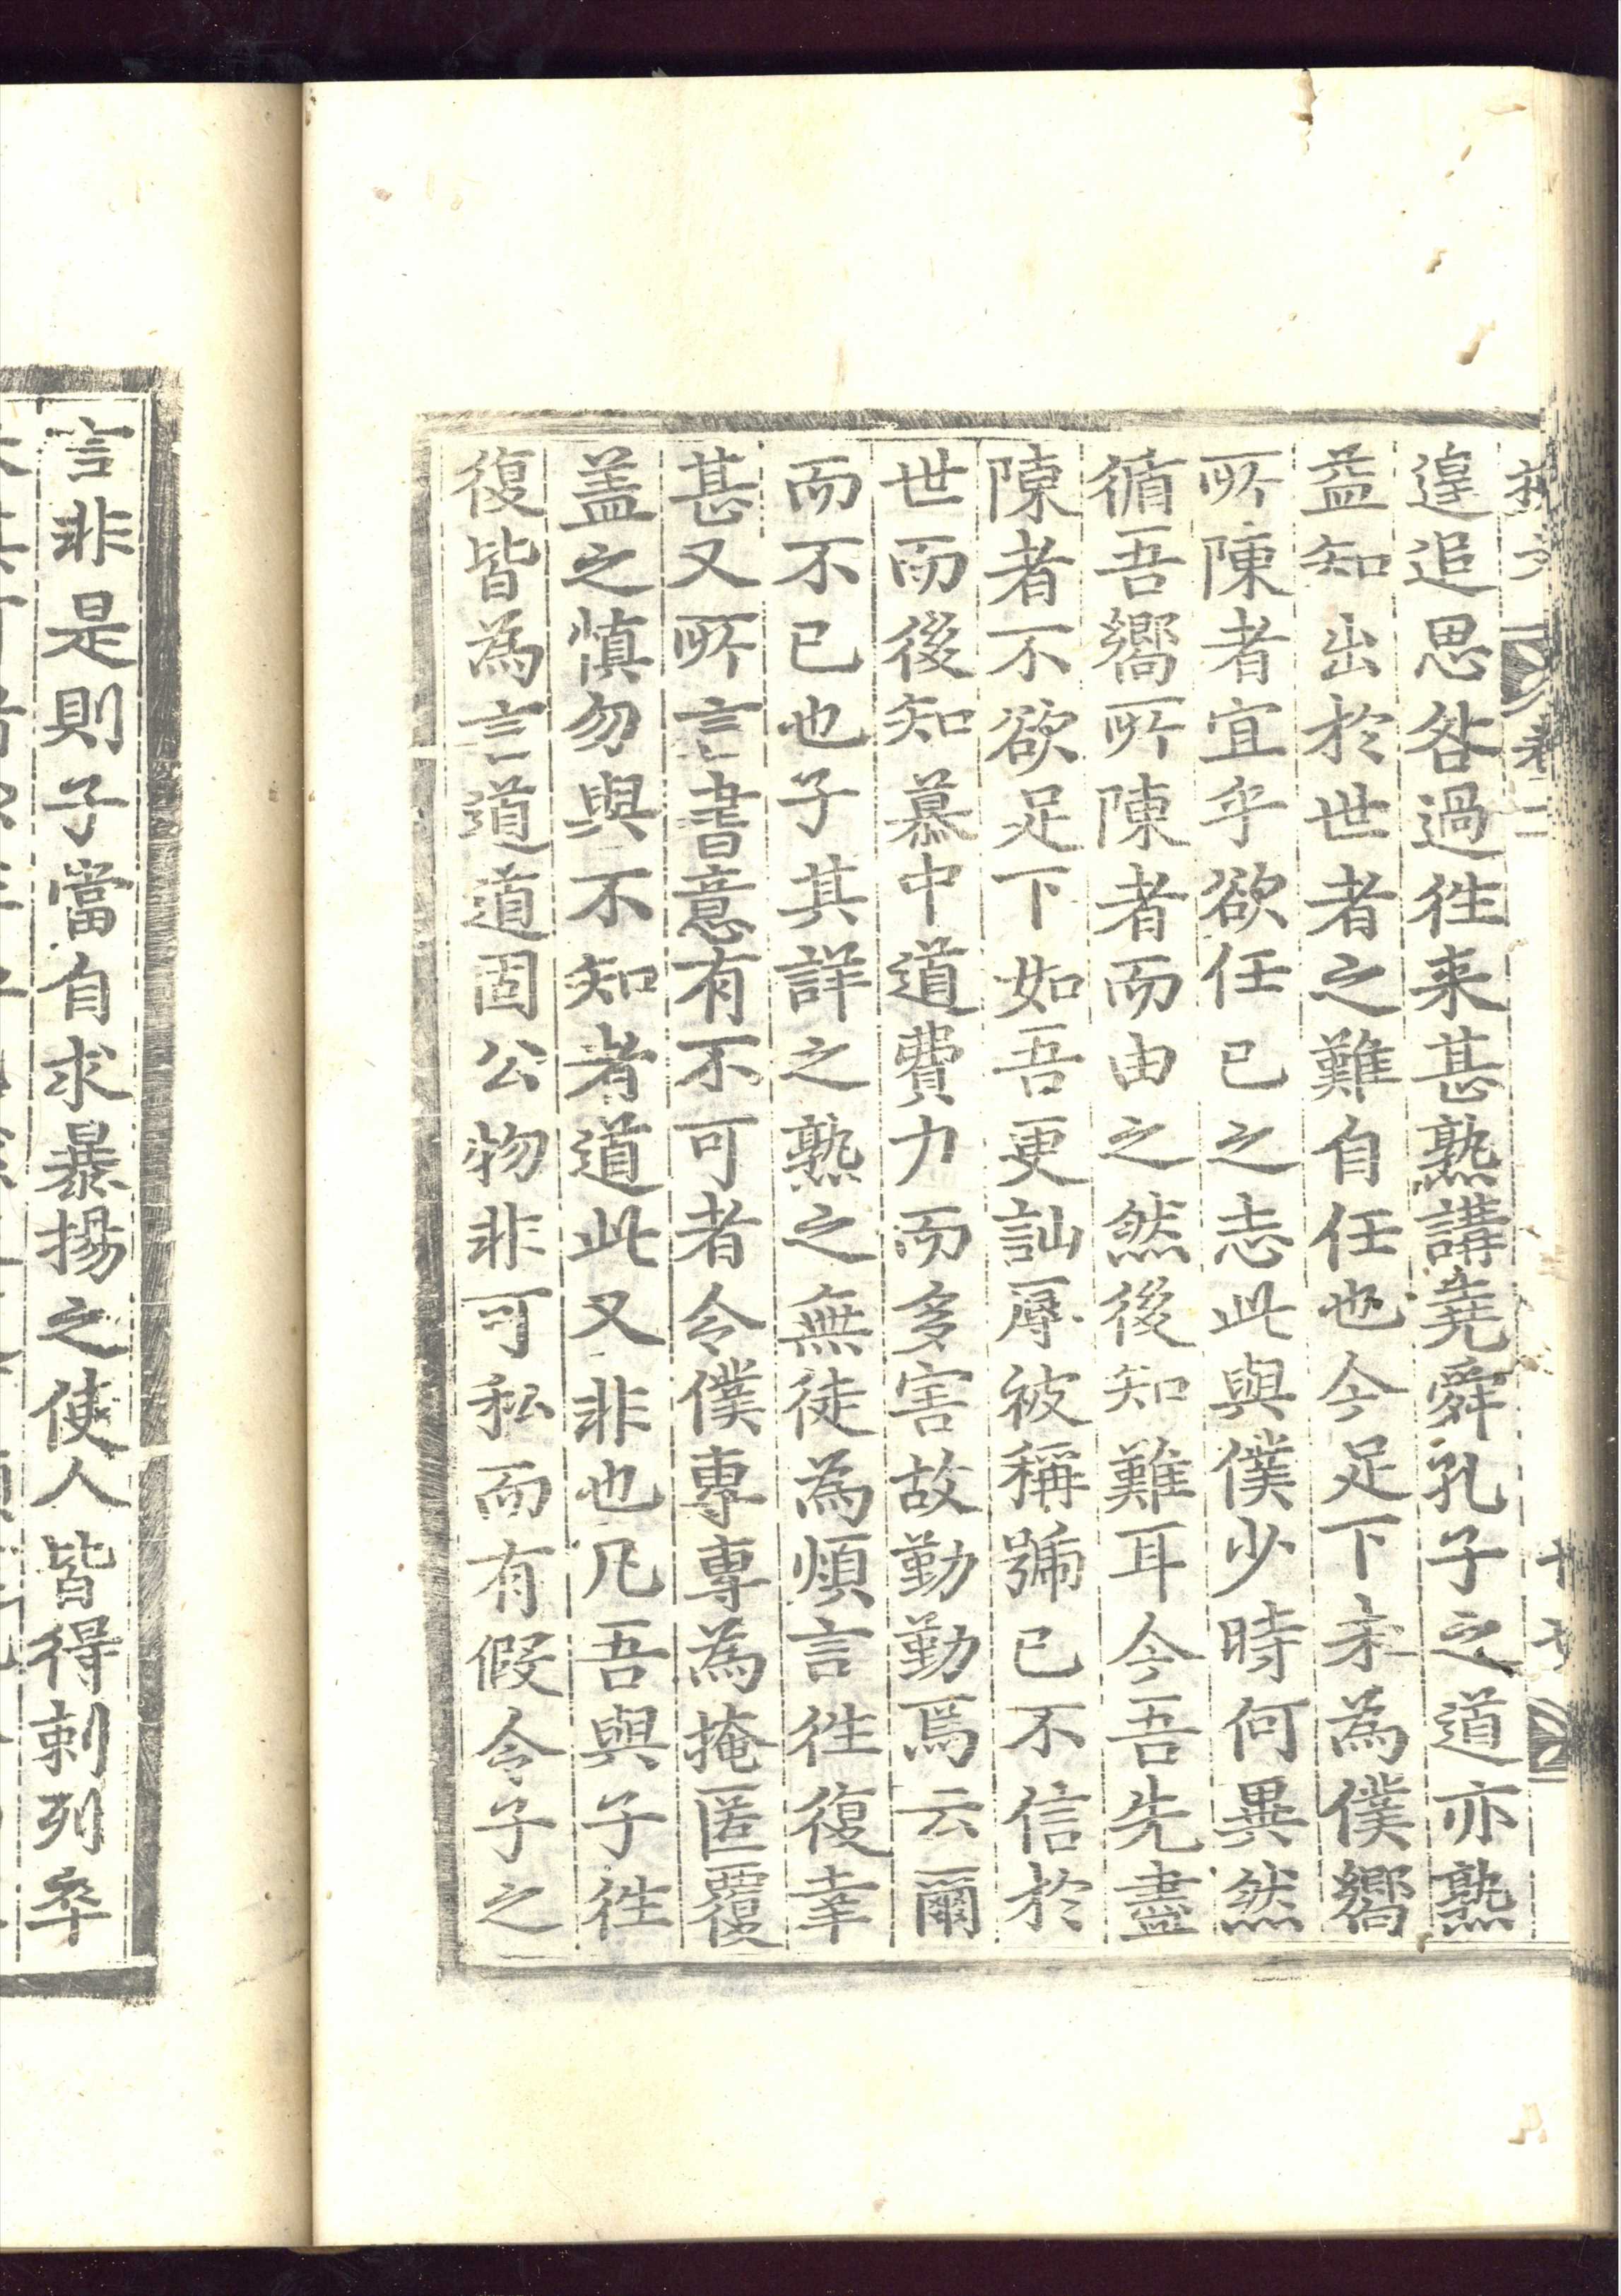 遑追思咎過徃来甚熟講堯舜孔子之道亦熟
益知出於世者之難自任也今足下未為僕嚮
所陳者宜乎欲任已之志此與僕少時何異然
循吾嚮所陳者而由之然後知難耳今吾先盡
陳者不欲足下如吾更訕辱被稱號已不信於
世而後知慕中道費力而多害故勤勤焉云爾
而不已也子其詳之熟之無徒為煩言徃復幸
甚又所言書意有不可者令僕專專為掩匿覆
盖之慎勿與不知者道此又非也凡吾與子徃
復皆為言道道固公物非可私而有假令子之
言非是則子當自求暴揚之使人皆得刺列卒